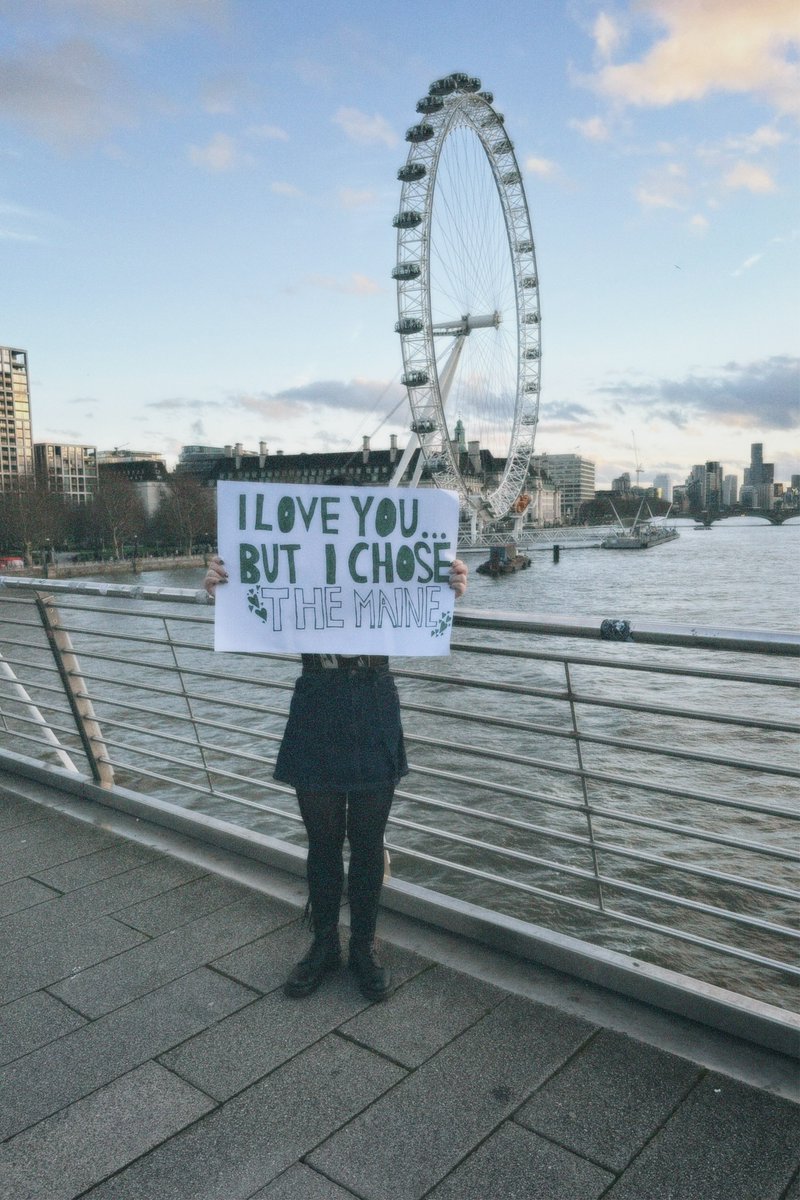 I LOVE YOU...
BUT I CHOSE
THE MAINE